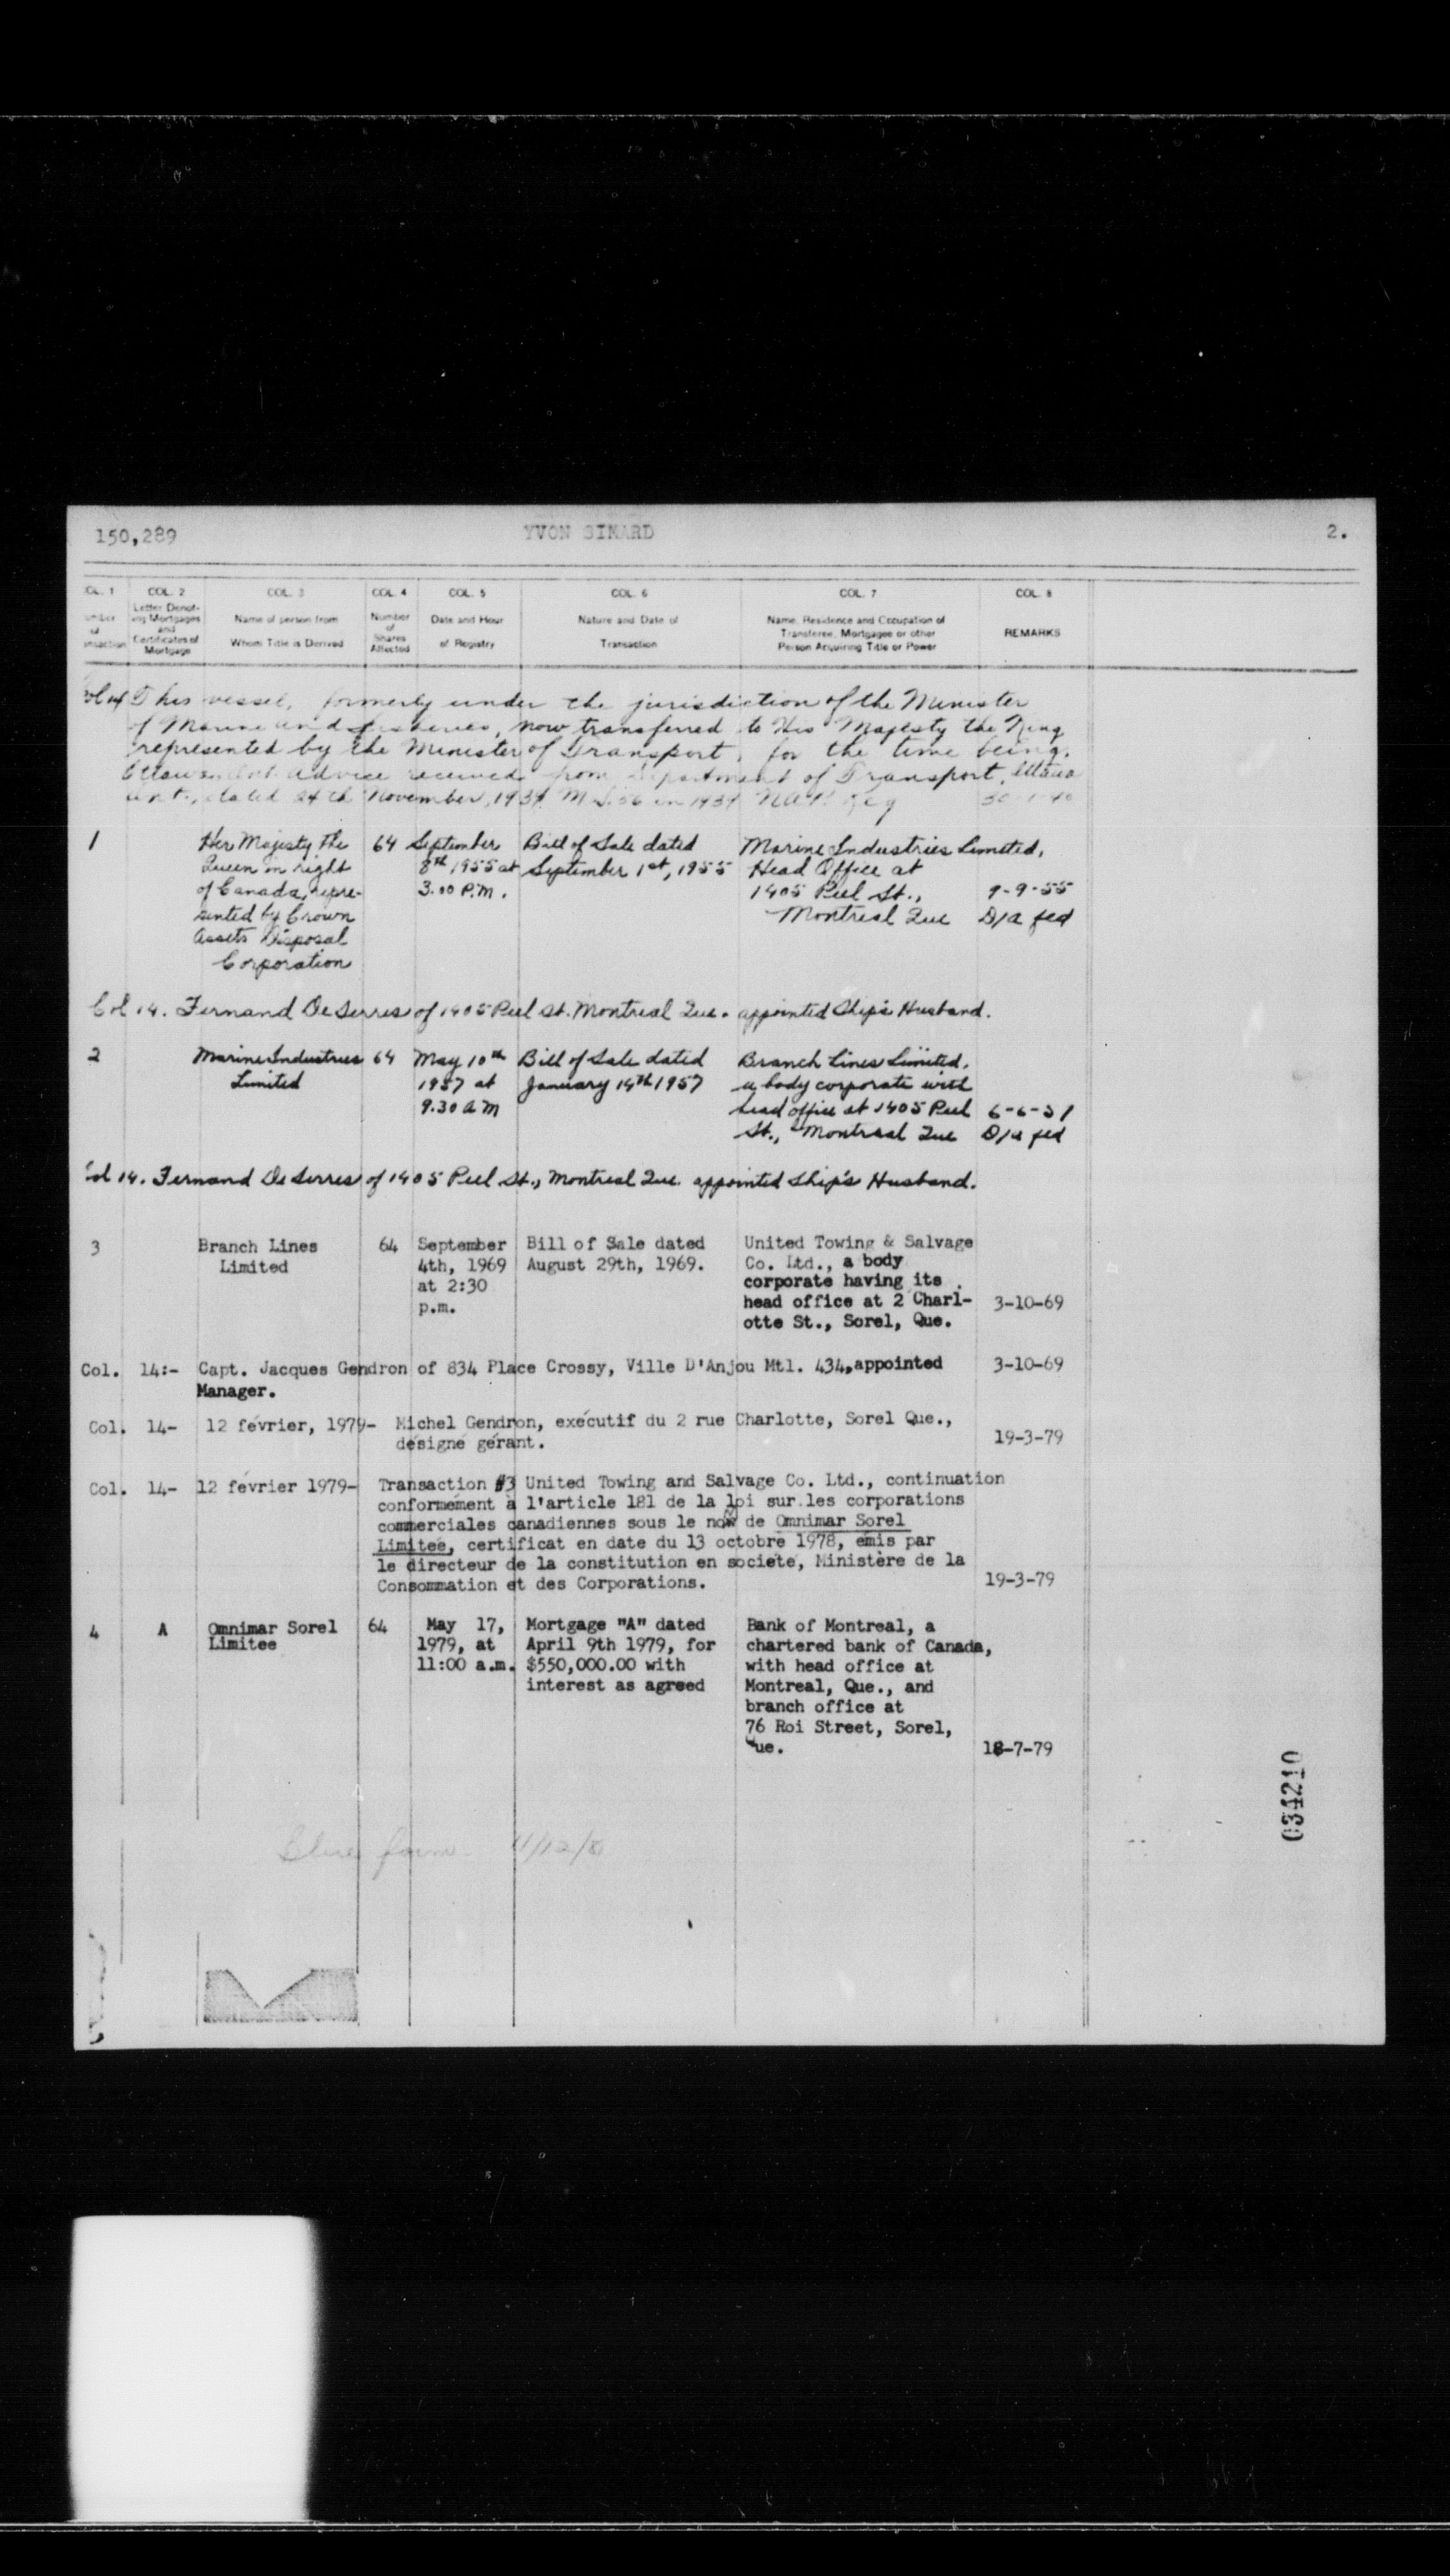 150,289 YVON SIMARD 2.
COL. 1 COL. 2 COL. 3 COL. 4 COL. 5 COL. 6 COL. 7 COL. 8
Letter Denot-
ing Mortgages
and
Certificates of
Mortgage
Name of person from
Whom Title is Derived
Number
of
Shares
Affected
Date and Hour
of Registry
Nature and Date of
Transaction
Name, Residence and Occupation of
Transferee, Mortgagee or other
Person Acquiring Title or Power
REMARKS
This vessel, formerly under the jurisdiction of the Minister
of Marine and Fisheries, now transferred to His Majesty the King
represented by the Minister of Transport, for the time being,
advice received from Department of Transport, Ottawa
Ont., dated 24th November, 193
1
Her Majesty the
Queen in right
of Canada, repre-
sented by Crown
Assets Disposal
Corporation
64
September
8th 1955 at
3.00 P.M.
Bill of Sale dated
September 1st, 1955
Marine Industries Limited,
Head Office at
1405 Peel St.,
Montreal Que
9-9-55
D/a fed
Col 14. Fernand DeSerres of 1405 Peel St. Montreal Que. appointed Ship's Husband.
2
Marine Industries
Limited
64
May 10th
1957 at
9.30 A M
Bill of Sale dated
January 14th 1957
Branch Lines Limited,
a body corporate with
head office at 1405 Peel
St., Montreal Que
6-6-57
D/a fed
Col 14. Fernand DeSerres of 1405 Peel St., Montreal Que. appointed Ship's Husband.
3
Branch Lines
Limited
64
September
4th, 1969
at 2:30
p.m.
Bill of Sale dated
August 29th, 1969.
United Towing & Salvage
Co. Ltd., a body
corporate having its
head office at 2 Charl-
otte St., Sorel, Que.
3-10-69
Col. 14:- Capt. Jacques Gendron of 834 Place Crossy, Ville D'Anjou Mtl. 434, appointed 3-10-69
Manager.
Col. 14- 12 février, 1979- Michel Gendron, exécutif du 2 rue Charlotte, Sorel Que.,
désigné gérant. 19-3-79
Col. 14- 12 février 1979- Transaction #3 United Towing and Salvage Co. Ltd., continuation
conformément à l'article 181 de la loi sur les corporations
commerciales canadiennes sous le nom de Omnimar Sorel
Limitée, certificat en date du 13 octobre 1978, émis par
le directeur de la constitution en societé, Ministère de la
Consommation et des Corporations. 19-3-79
4
A
Omnimar Sorel
Limitee
64
May 17,
1979, at
11:00 a.m.
Mortgage "A" dated
April 9th 1979, for
$550,000.00 with
interest as agreed
Bank of Montreal, a
chartered bank of Canada,
with head office at
Montreal, Que., and
branch office at
76 Roi Street, Sorel,
Que.
18-7-79
034210